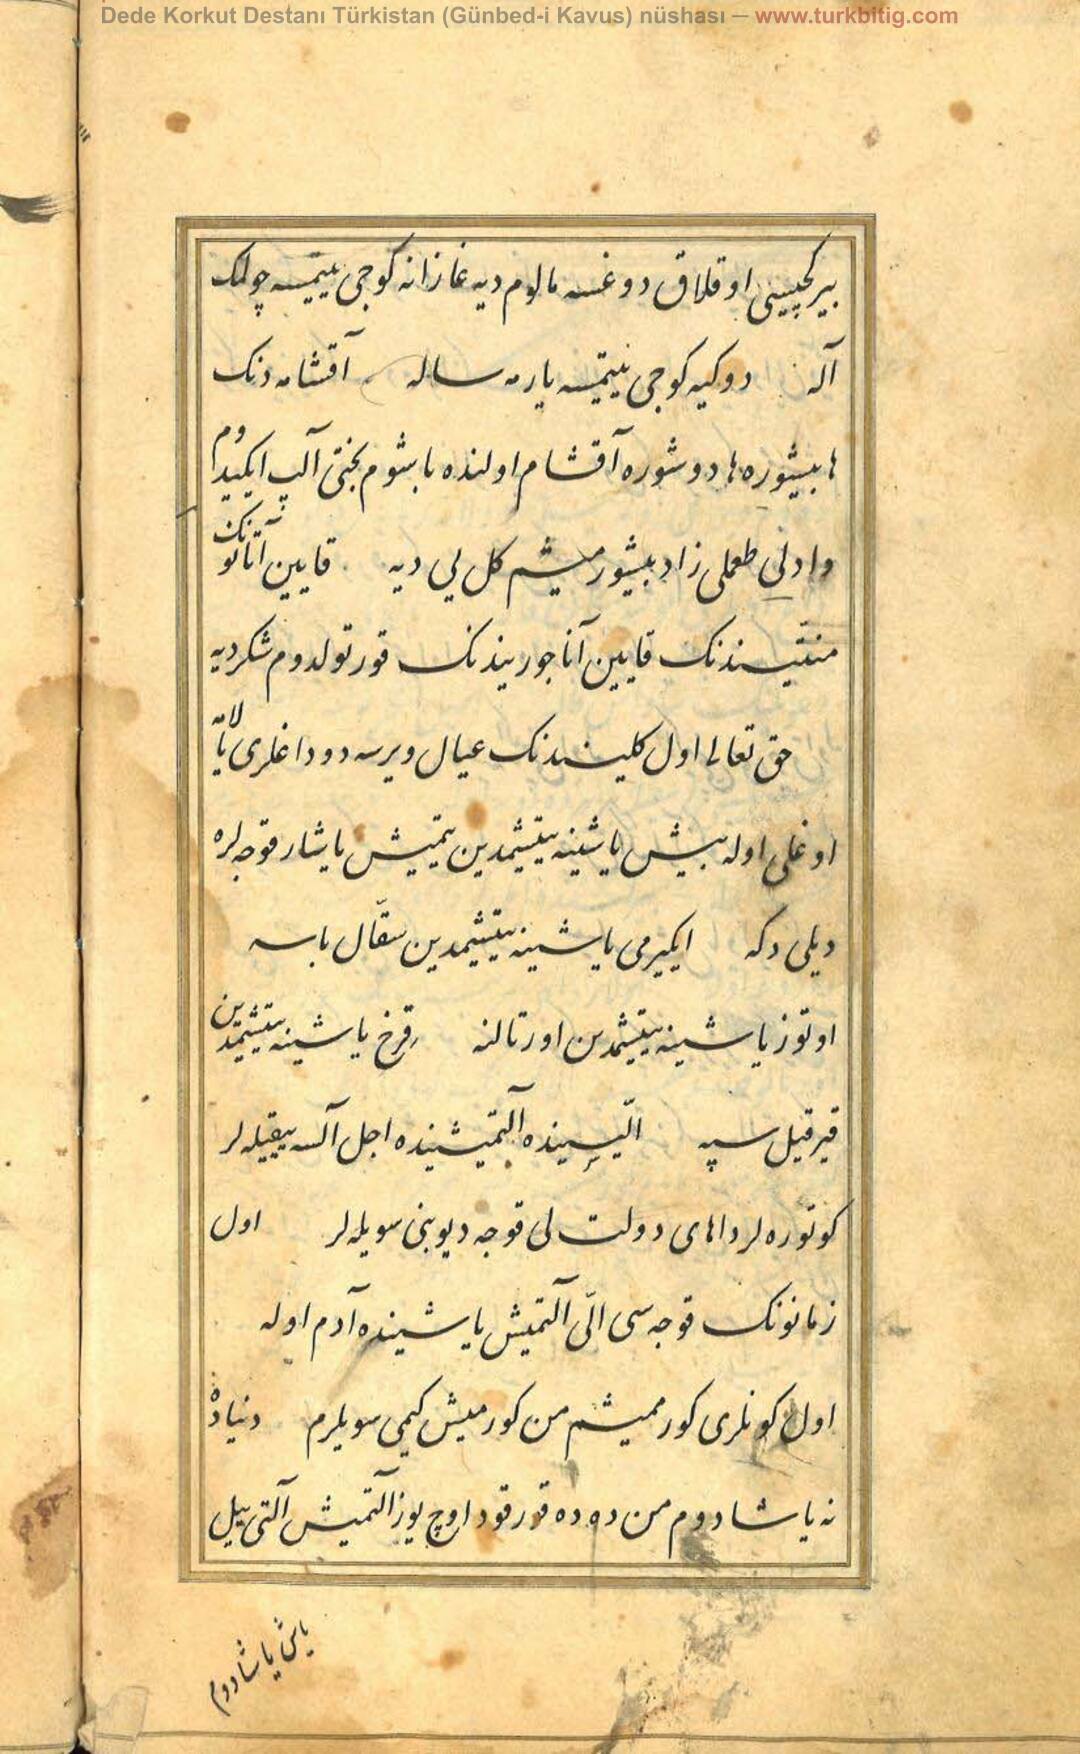 Dede Korkut Destanı Türkistan (Günbed-i Kavus) nüshası — www.turkbitig.com
بیر کچیسی اوقلاق دوغسه مالوم دیه غازانه کوجی ییتمیسه چولمک
آله دوکیه کوجی ییتمیسه یارمه ساله آقشامه دنک
ها بیشوره ها دوشوره آقشام اولنده باشوم بختی آلپ ایکیدوم
دادلی طعملی زاد بیشورمیشم کل یی دیه قایین آتانونک
منتیسندنک قایین آنا جوریندنک قورتولدوم شکر دیه
حق تعالی اول کلیندنک عیال ویرسه دوداغلری یالامه
اوغلی اوله بیش یاشینه ییتیشمدین یتمیش یاشار قوجه لره
دیلی دکه ایکیرمی یاشینه ییتیشمدین سقّال باسه
اوتوز یاشینه ییتیشمدین اورتالنه قرخ یاشینه ییتیشمدین
قیر قیل سپه الّیسینده آلتمیشینده اجل آلسه ییقیله لر
کوتوره لر داهای دولت لی قوجه دیوبنی سویله لر اول
زمانونک قوجه سی الّی آلتمیش یاشینده آدم اوله
اول کونلری کورممیشم من کورمیش کیمی سویلرم دنیاده
نه یاشادوم من ده ده قورقود اوچ یوز آلتمیش آلتی ییل
یاش یاشادوم